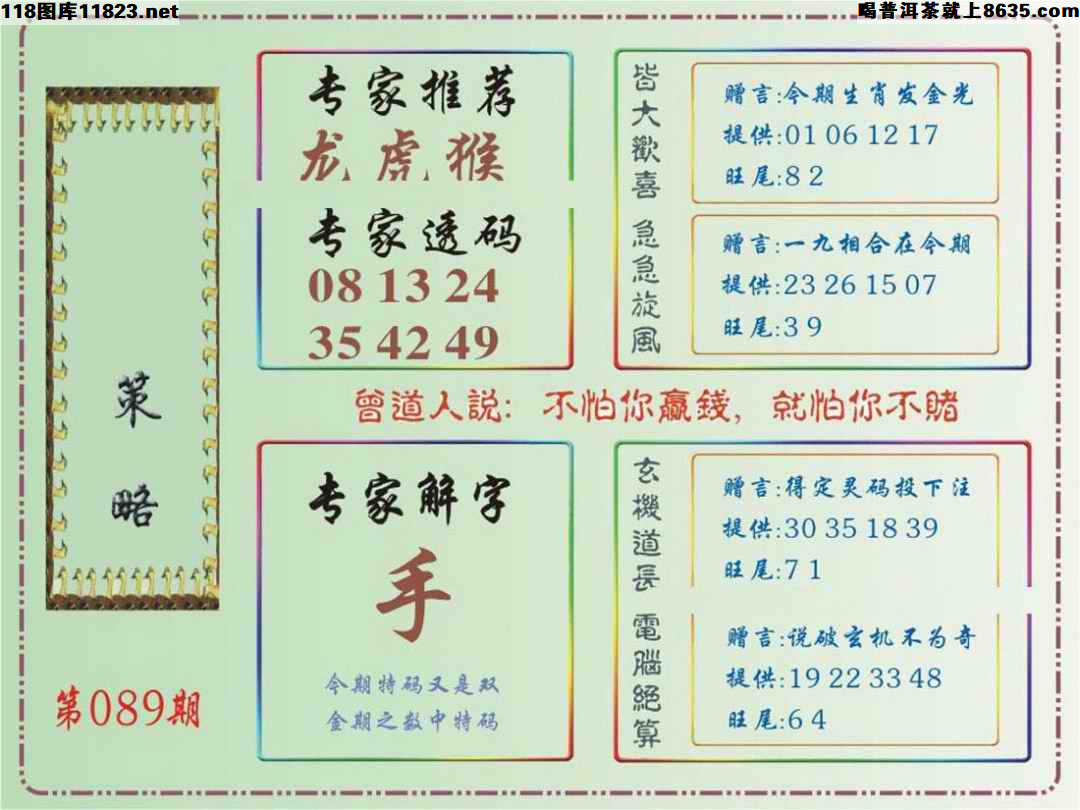 118图库11823.net
喝普洱茶就上8635.com
策略
第089期
专家推荐
龙 虎 猴
专家透码
08 13 24
35 42 49
皆大歡喜
赠言:今期生肖发金光
提供:01 06 12 17
旺尾:8 2
急急旋風
赠言:一九相合在今期
提供:23 26 15 07
旺尾:3 9
曾道人説: 不怕你赢錢, 就怕你不賭
专家解字
手
今期特码又是双
金期之数中特码
玄機道長
赠言:得定灵码投下注
提供:30 35 18 39
旺尾:7 1
電腦絕算
赠言:说破玄机不为奇
提供:19 22 33 48
旺尾:6 4